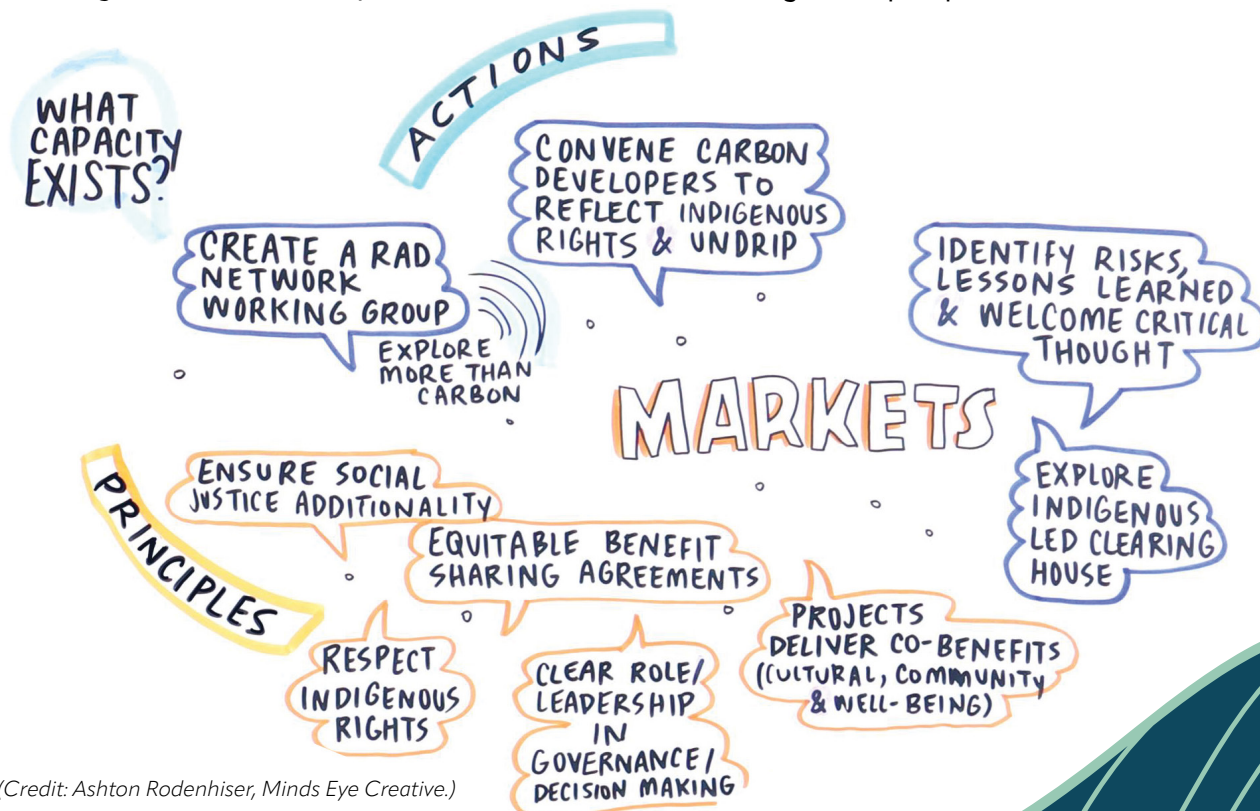 WHAT
CAPACITY
EXISTS?
ACTIONS
CREATE A RAD
NETWORK
WORKING GROUP
EXPLORE
MORE THAN
CARBON
CONVENE CARBON
DEVELOPERS TO
REFLECT INDIGENOUS
RIGHTS & UNDRIP
IDENTIFY RISKS,
LESSONS LEARNED
& WELCOME CRITICAL
THOUGHT
MARKETS
EXPLORE
INDIGENOUS
LED CLEARING
HOUSE
PRINCIPLES
ENSURE SOCIAL
JUSTICE ADDITIONALITY
EQUITABLE BENEFIT
SHARING AGREEMENTS
RESPECT
INDIGENOUS
RIGHTS
CLEAR ROLE/
LEADERSHIP
IN
GOVERNANCE/
DECISION MAKING
PROJECTS
DELIVER CO-BENEFITS
(CULTURAL, COMMUNITY
& WELL-BEING)
(Credit: Ashton Rodenhiser, Minds Eye Creative.)